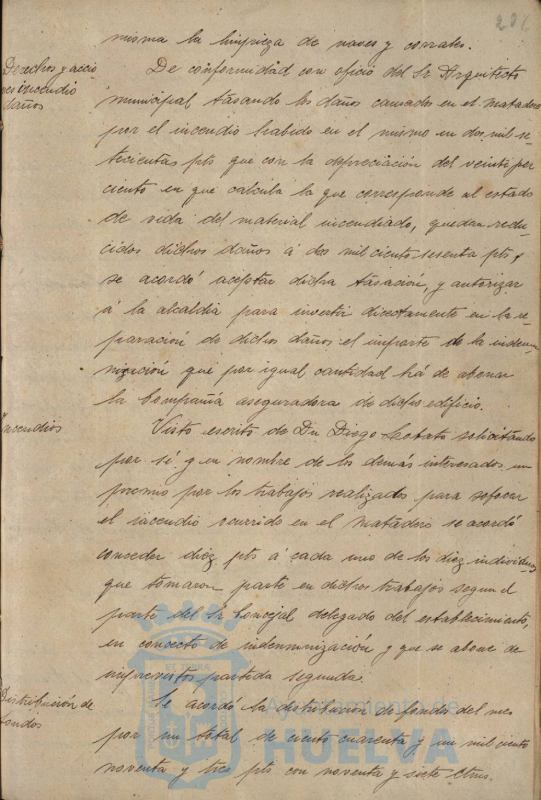 misma la limpieza de naves y corrales.
Derechos y accio
nes incendio
daños
De conformidad con oficio del Sr Arquitecto
municipal tasando los daños causados en el matadero
por el incendio habido en el mismo en dos mil se-
tecientas pts que con la depreciación del veinte por
ciento en que calcula la que corresponde al estado
de vida del material incendiado, quedan redu-
cidos dichos daños á dos mil ciento sesenta pts,
se acordó aceptar dicha tasación, y autorizar
á la alcaldia para invertir directamente en la re-
paración de dichos daños el importe de la indem-
nización que por igual cantidad há de abonar
la Compañia aseguradora de dicho edificio.
Incendios
Visto escrito de Dn Diego solicitando
por sí y en nombre de los demás interesados un
premio por los trabajos realizados para sofocar
el incendio ocurrido en el matadero se acordó
conceder diez pts á cada uno de los diez individuos
que tomaron parte en dichos trabajos segun el
parte del Sr Concejal delegado del establecimiento,
en concepto de indemnización y que se abone de
imprevistos partida segunda.
Distribución de
fondos
Se acordó la distribucion de fondos del mes
por un total de ciento cuarenta y un mil ciento
noventa y tres pts con noventa y siete ctms.
Ayuntamiento de
HUELVA